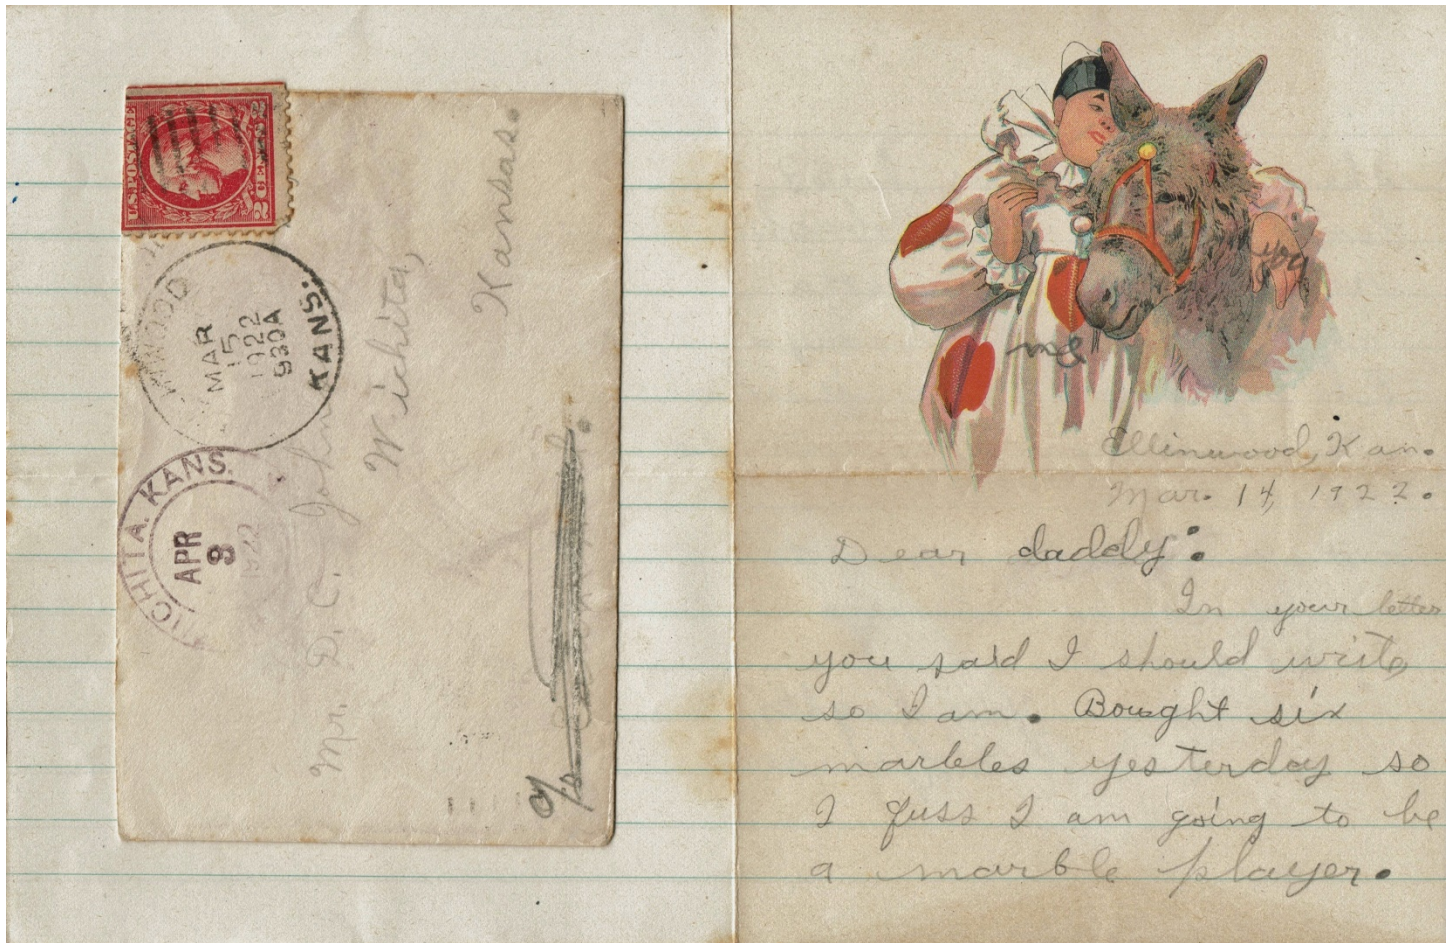 U.S. POSTAGE
2 CENTS 2
WOOD
KANS.
MAR
15
1922
930A
WICHITA. KANS.
APR
8
1922
Mr. D. C. John
Wichita,
Kansas.
c/o
me
you
Ellinwood, Kan.
Mar. 14, 1922.
Dear daddy:
In your letter
you said I should write,
so I am. Bought six
marbles yesterday so
I guss I am going to be
a marble player.